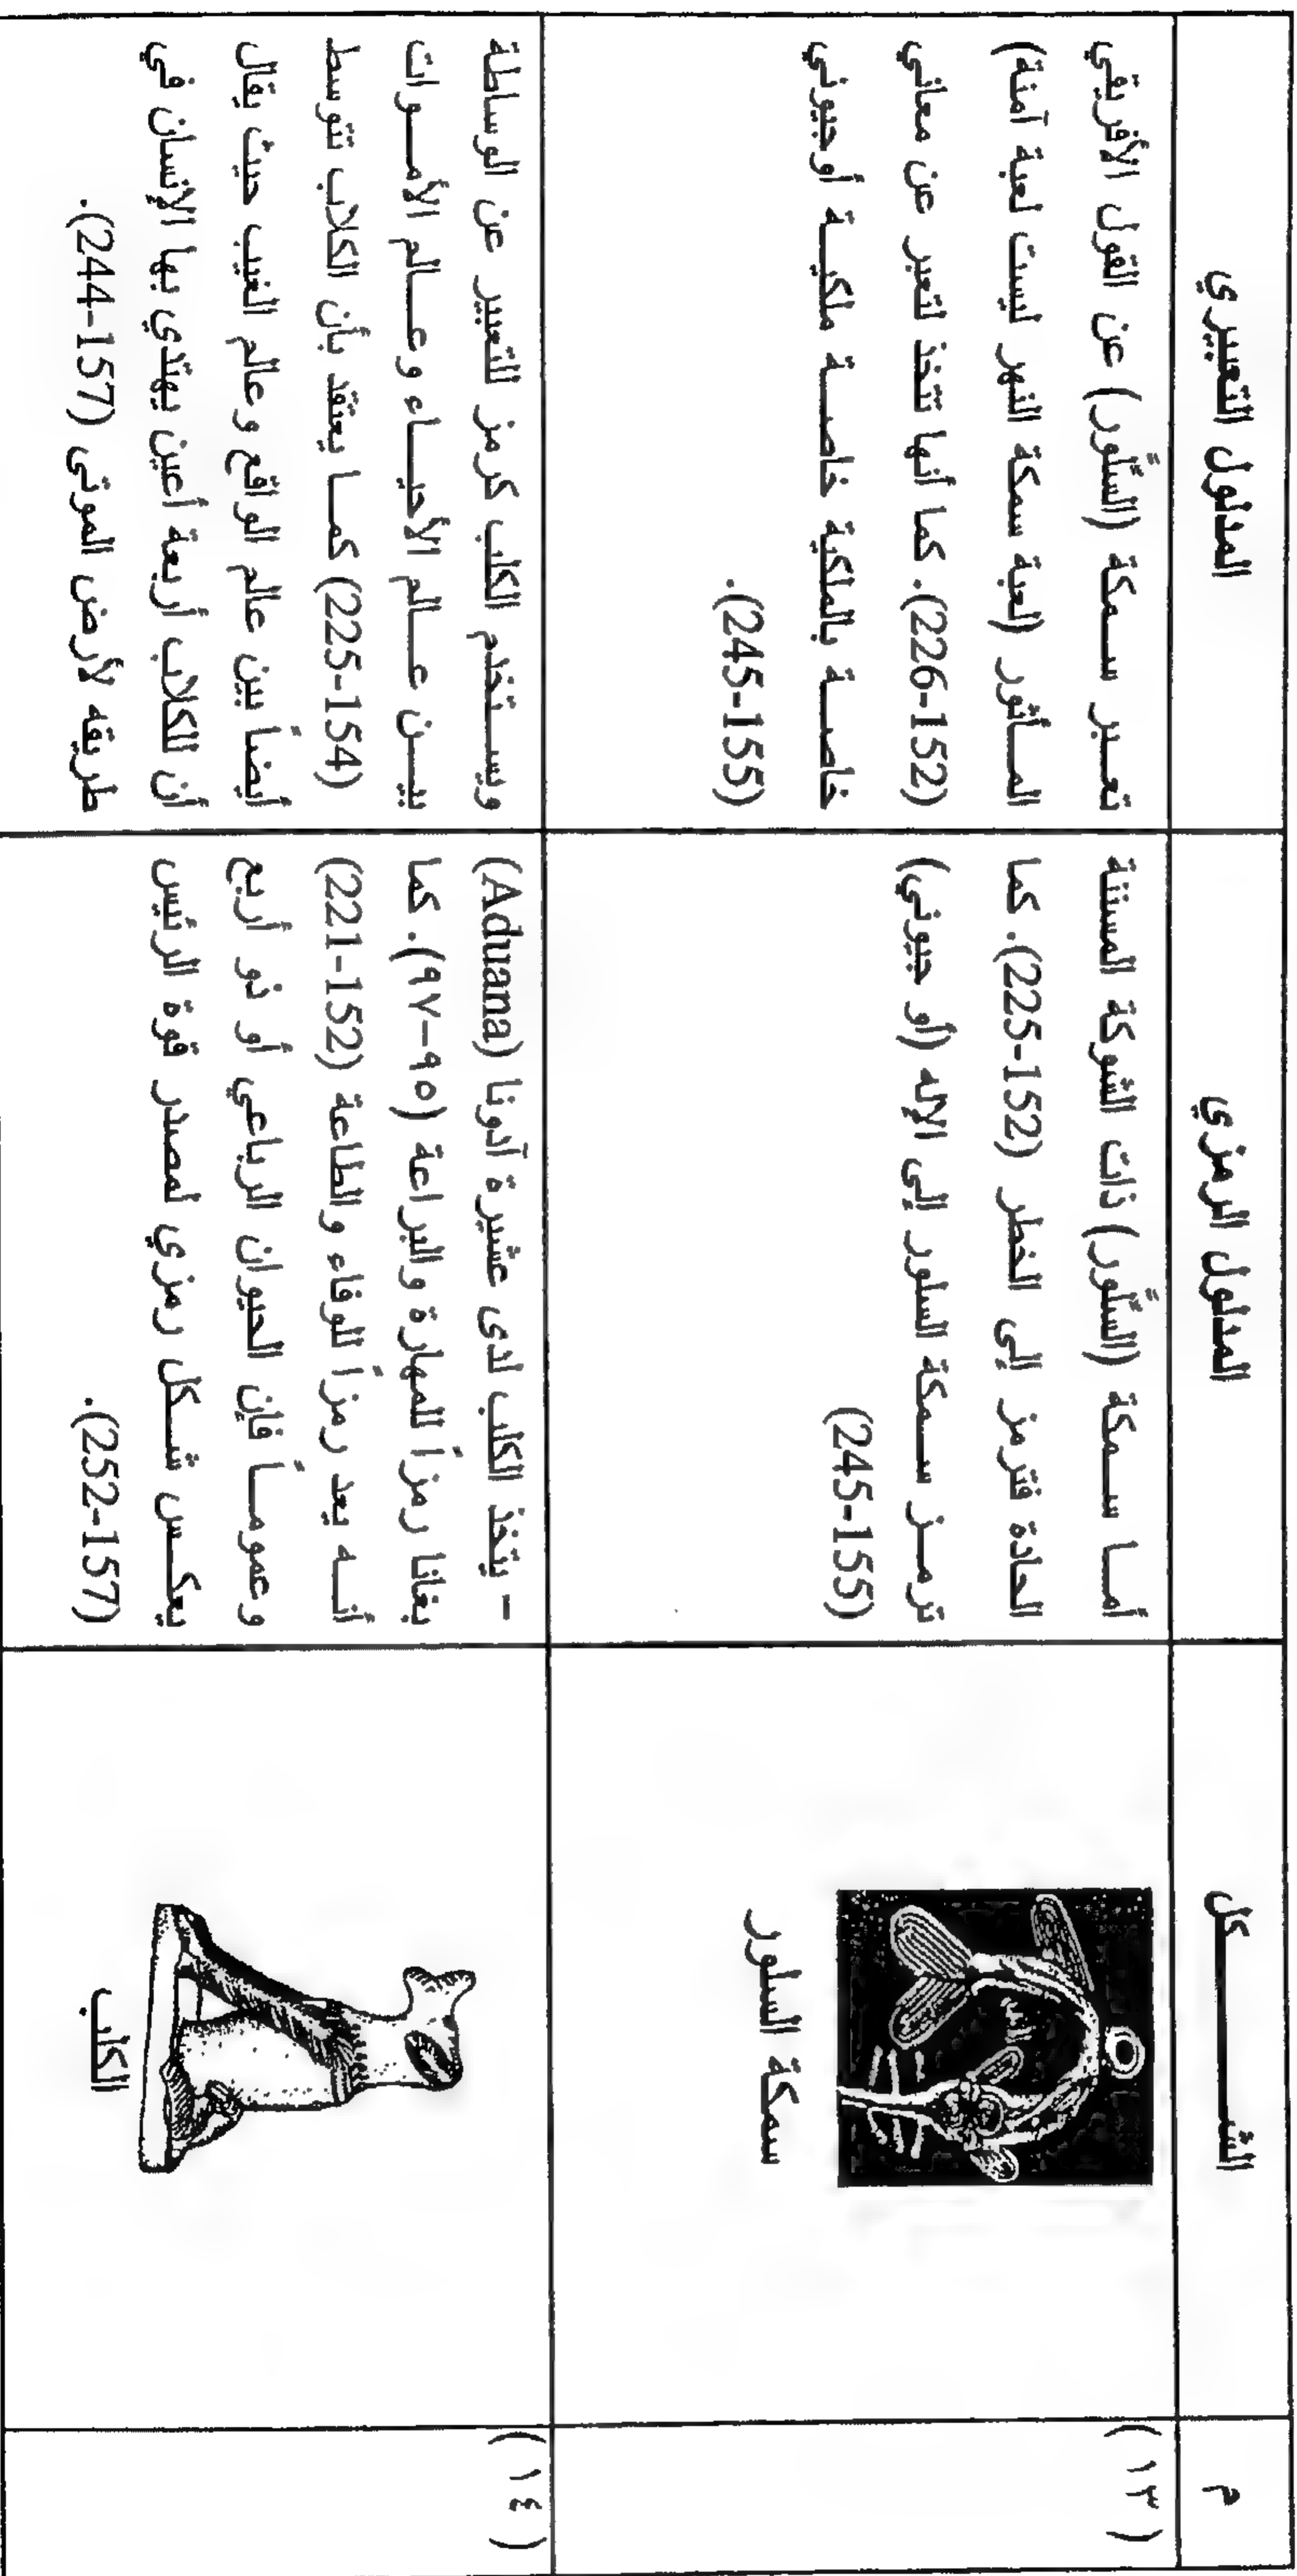 م
الشـــــكل
المدلول الرمزي
المدلول التعبيري
(١٣)
سمكة السلور
أما سمكة (السِّلَّور) ذات الشوكة المسننة
الحادة فترمز إلى الخطر (152-225). كما
ترمز سمكة السلور إلى الإله (أو جيوني)
(155-245)
تعبر سمكة (السِّلَّور) عن القول الأفريقي
المأثور (لعبة سمكة النهر ليست لعبة آمنة)
(152-226). كما أنها تتخذ لتعبر عن معاني
خاصة بالملكية خاصة ملكية أوجيوني
(155-245).
(١٤)
الكلب
- يتخذ الكلب لدى عشيرة آدونا (Aduana)
بغانا رمزاً للمهارة والبراعة (٩٥-٩٧). كما
أنه يعد رمزاً للوفاء والطاعة (152-221)
وعموماً فإن الحيوان الرباعي أو ذو أربع
يعكس شكل رمزي لمصدر قوة الرئيس
(157-252).
ويستخدم الكلب كرمز للتعبير عن الوساطة
بين عالم الأحياء وعالم الأموات
(154-225) كما يعتقد بأن الكلاب تتوسط
أيضاً بين عالم الواقع وعالم الغيب حيث يقال
أن للكلاب أربعة أعين يهتدي بها الإنسان في
طريقه لأرض الموتى (157-244).